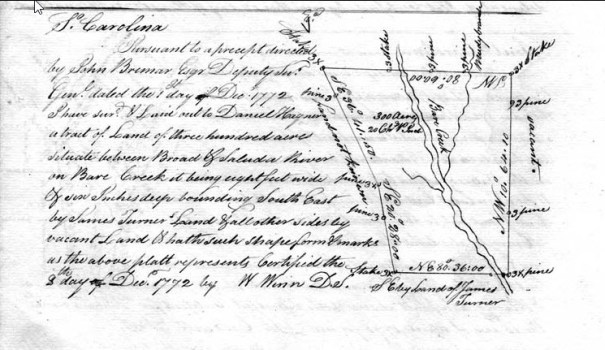 So. Carolina
Pursuant to a precept directed
by John Bremar Esqr. Deputy Sur.
Genl. dated the 1st day of Decr. 1772
I have surd. & Laid out to Daniel
a tract of Land of three hundred acres
situate between Broad & Saluda River
on Bare Creek it being eight feet wide
& six Inches deep bounding South East
by James Turner's Land & all other sides by
vacant Land & hath such shape form & marks
as the above platt represents Certified the
8th day of Decr. 1772 by W Winn D.S.
Stake 3X
stake
3 pine
3 pine
3X Stake
80.00
pine 3
S E 36° 41.50
300 Acres
Bare Creek
3 pine
vacant
N W 10° 64.10
pine 3X
pine 3
S E 20° 28.00
3 pine
Stake 3X
N E 80° 36.00
3X pine
S E by Land of James
Turner